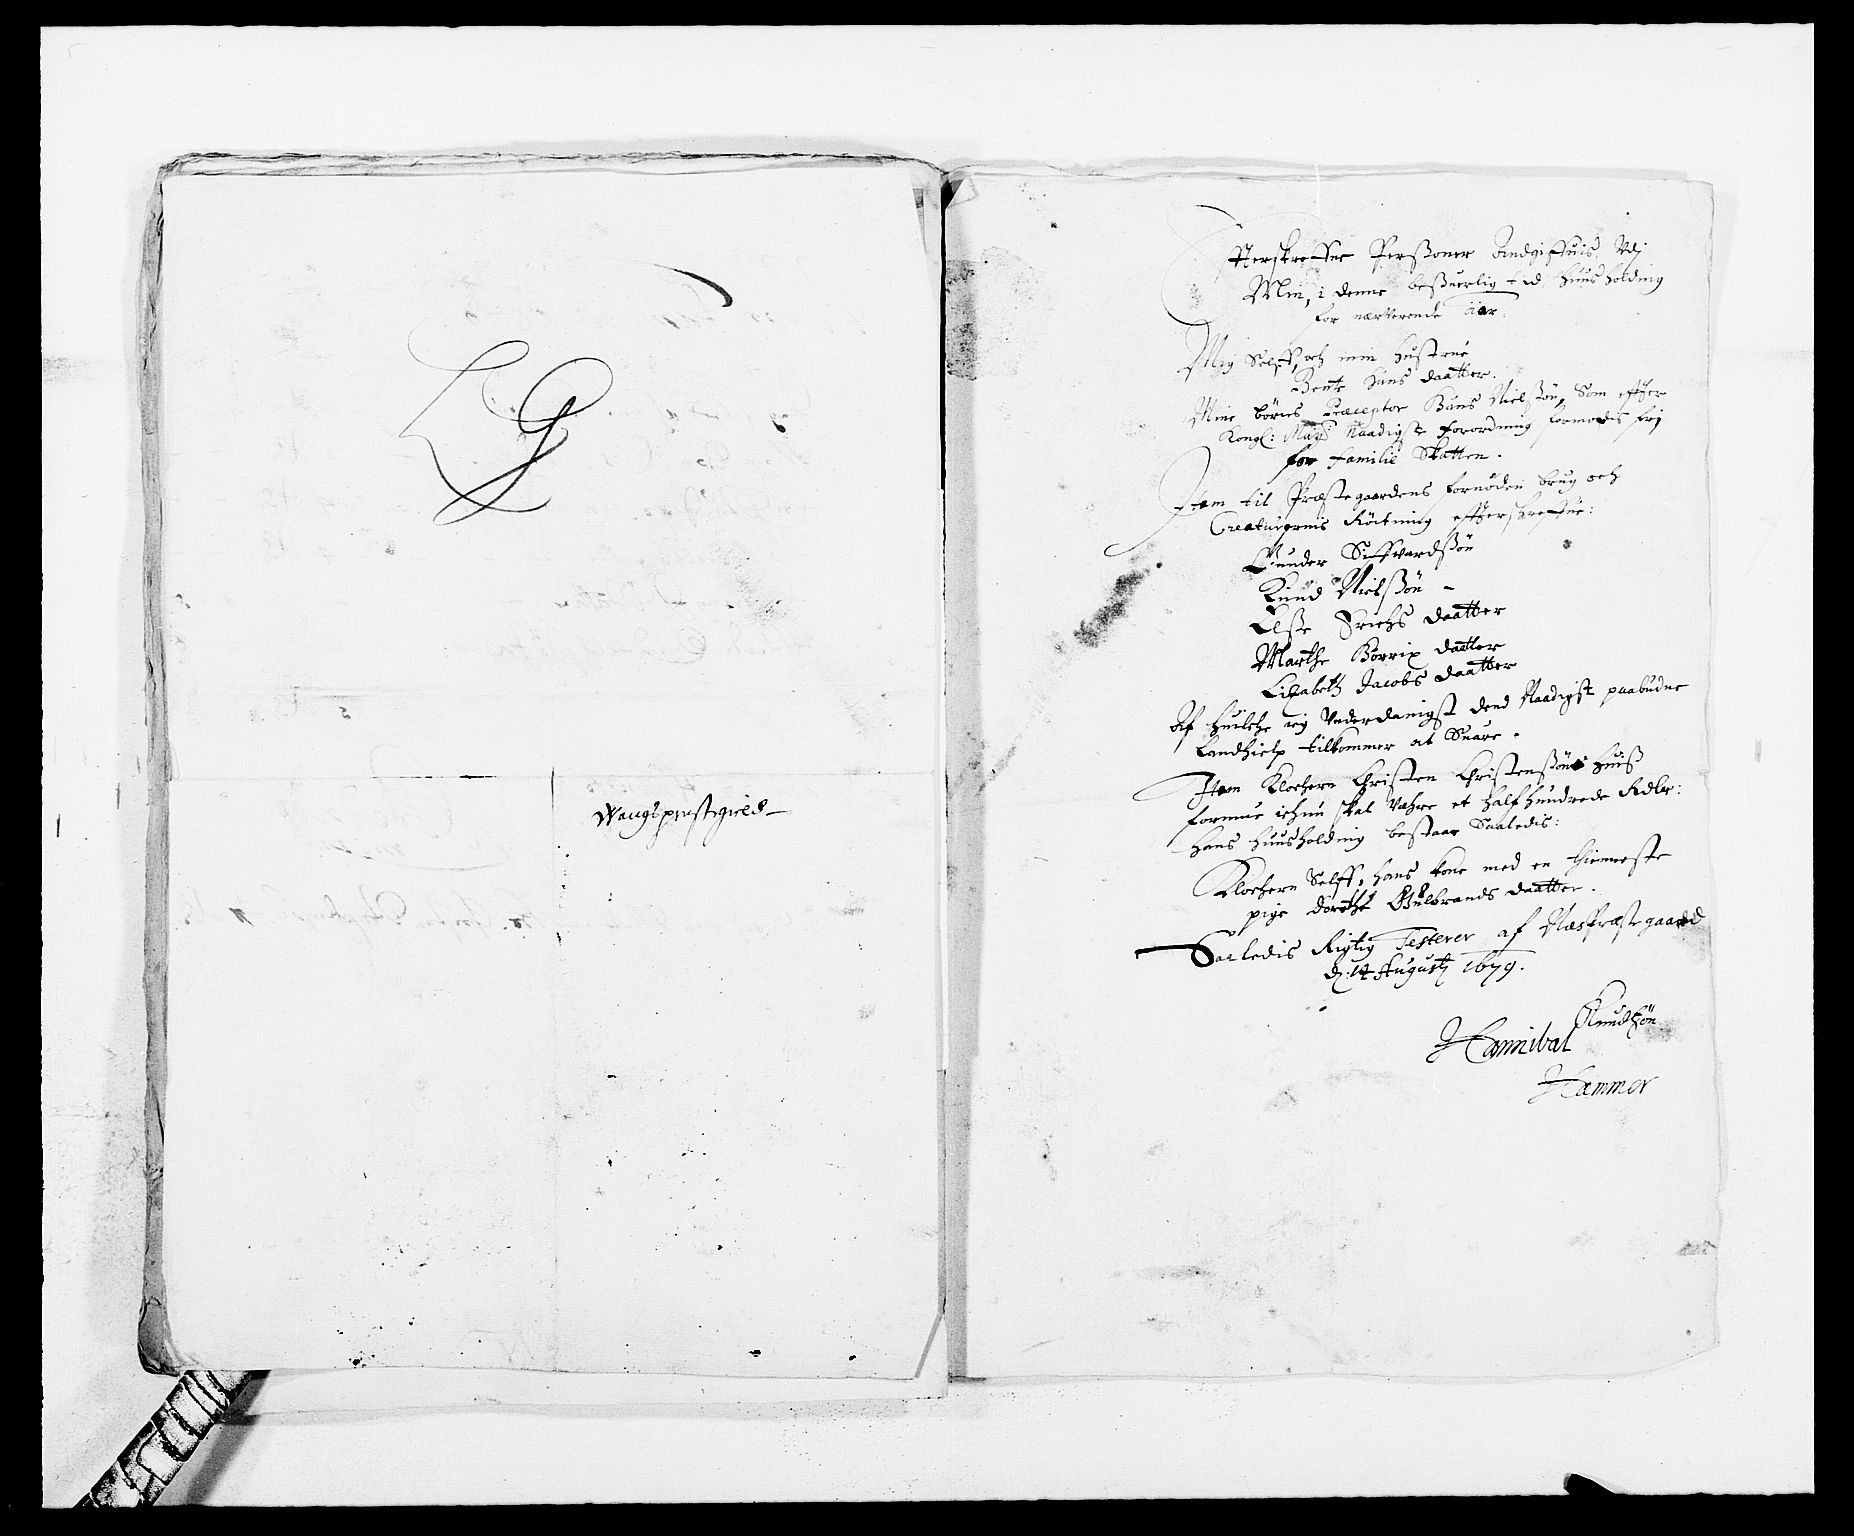 G
Wangs prestegield
Effterskreffne Persohner Andgiffuis Udj
Min, i denne besuerlig tid, Huus holding
for nærverende aar.
Mig Selff, och min Hustrue
Bente Hans daatter.
Mine börns Præceptor Hans Nielssön, Som effter
Kongl: Mayts Naadigste forordning formodis frj
for Familie Skatten.
Item til Præstegaardens fornöden brug och
Creaturernis Röctning effterskreffne:
Gunder Siffvardssön
Knud Nielssön -
Elsse Erichs daatter
Marthe Börrix daatter
Lizabeth Jacobs daatter
Af huilche ieg Underdanigst dend Naadigst paabudne
Landhielp tilkommer at Suare.
Item Klochern Christen Christenssöns huis
formue ichun skal vahre et half hundrede Rdlr:
Hans huusholding bestaar Saaledis:
Klochern Selff, hans kone med en thienneste
pige dorethe Gulbrands daatter.
Saaledis Rigtig Testerer af Næs Præstegaard
d: 14 Augustj 1679.
Hannibal Knudssön
Hammer